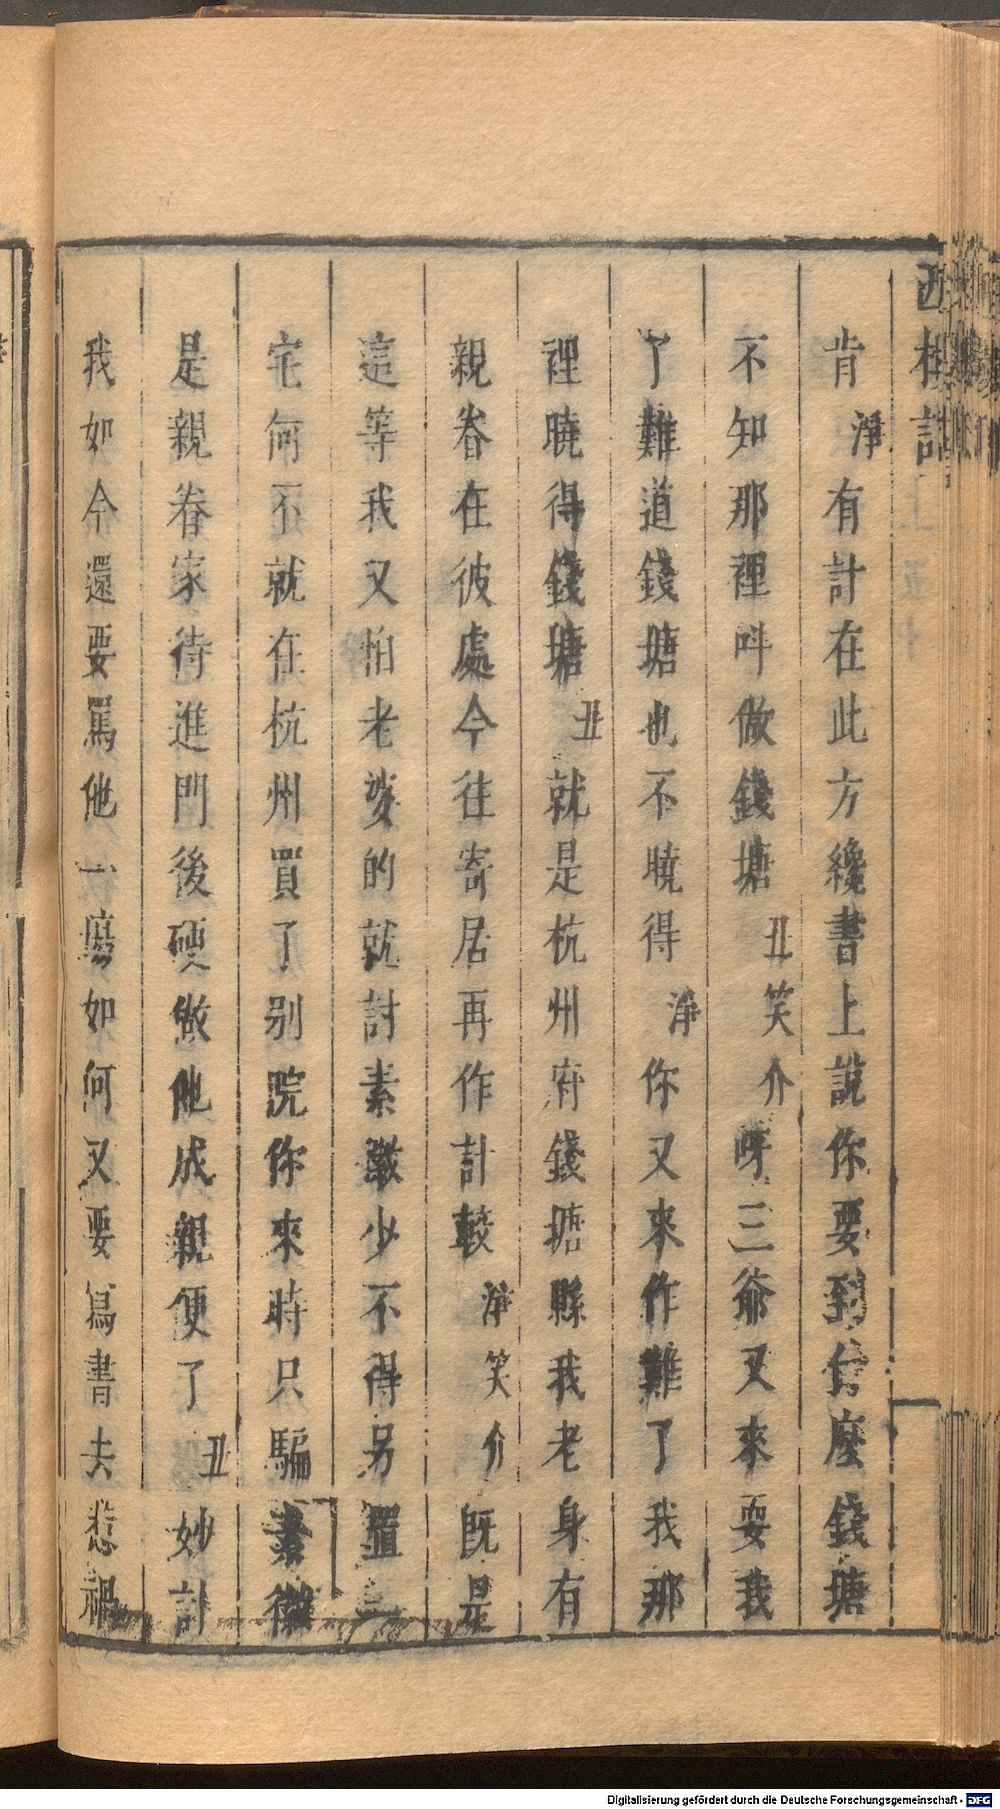 肯淨有計在此方纔書上說你要到什麼錢塘
不知那裡呌做錢塘丑笑介呀三爺又來耍我
了難道錢塘也不曉得淨你又來作難了我那
裡曉得錢塘丑就是杭州府錢塘縣我老身有
親眷在彼處今往寄居再作計較淨笑介既是
這等我又怕老婆的就討素徽少不得另置
宅何不就在杭州買了別院你來時只騙素徽
是親眷家待進門後硬做他成親便了丑妙計
我如今還要罵他一塲如何又要寫書去惹禍
Digitalisierung gefördert durch die Deutsche Forschungsgemeinschaft - DFG